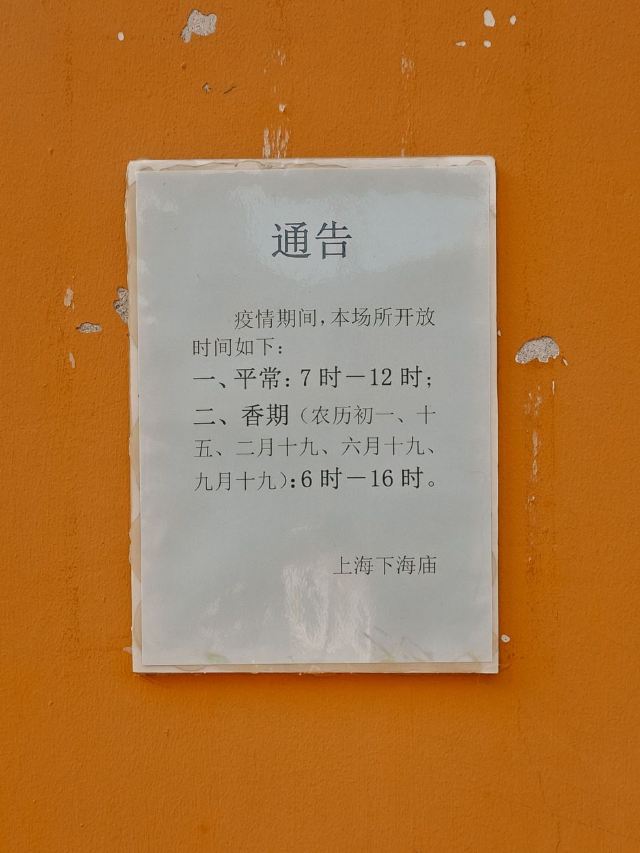 通告
疫情期间,本场所开放
时间如下:
一、平常: 7 时－12 时;
二、香期（农历初一、十
五、二月十九、六月十九、
九月十九）: 6 时－16 时。
上海下海庙